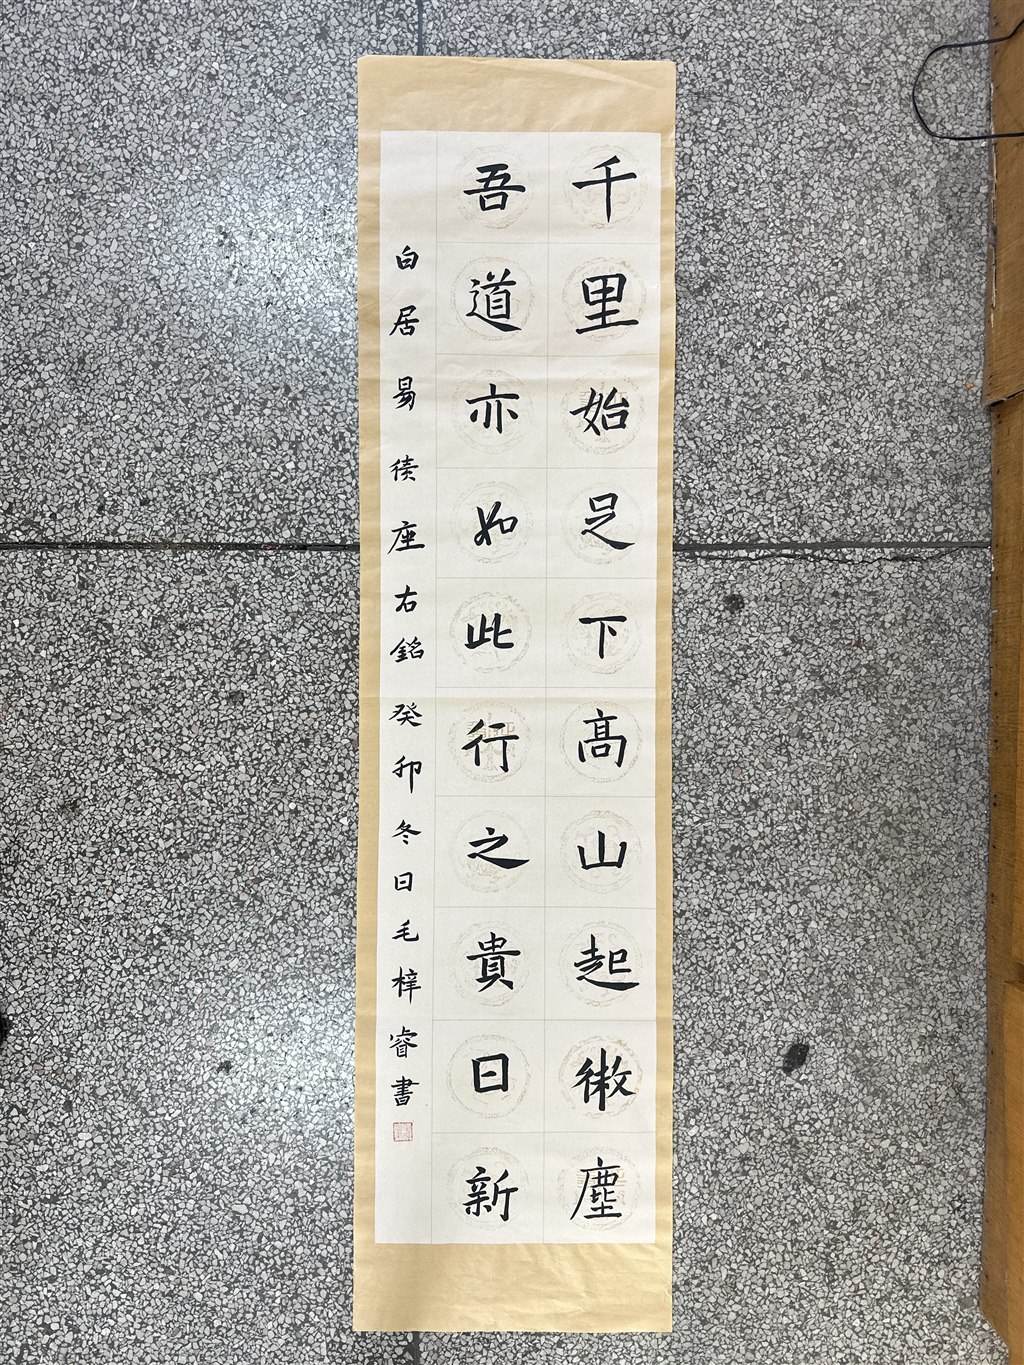 千里始足下高山起微塵
吾道亦如此行之貴日新
白居易续座右銘癸卯冬日毛梓睿書